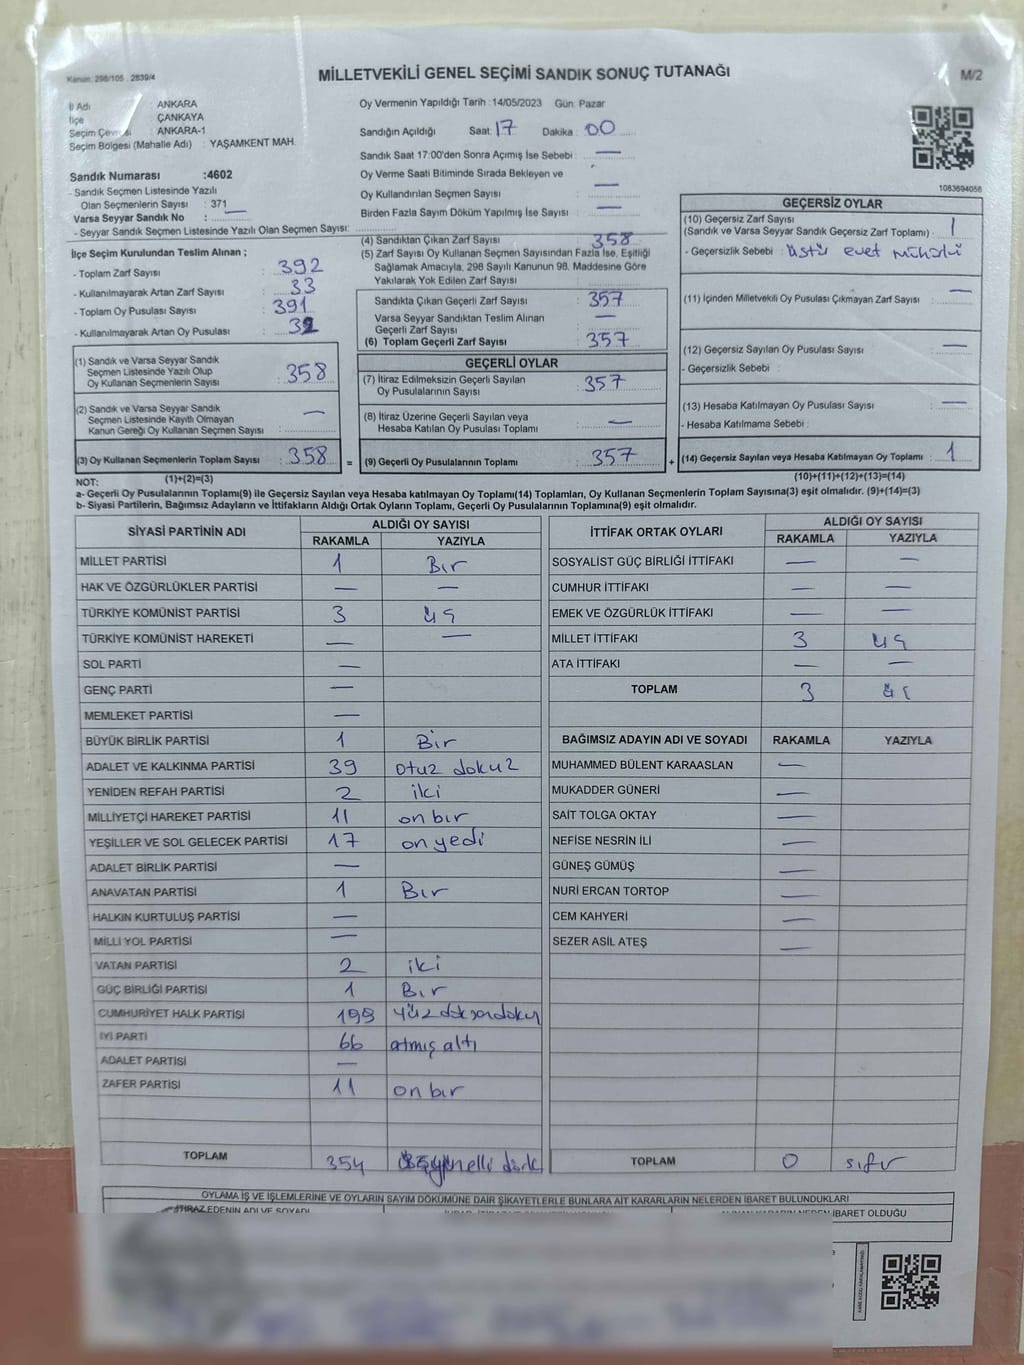 Kanun: 298/105 , 2839/4
MİLLETVEKİLİ GENEL SEÇİMİ SANDIK SONUÇ TUTANAĞI
M/2
İl Adı : ANKARA
İlçe : ÇANKAYA
Seçim Çevresi : ANKARA-1
Seçim Bölgesi (Mahalle Adı) : YAŞAMKENT MAH.
Oy Vermenin Yapıldığı Tarih :14/05/2023 Gün: Pazar
Sandığın Açıldığı Saat: 17 Dakika : 00
Sandık Saat 17:00'den Sonra Açımış İse Sebebi : —
Oy Verme Saati Bitiminde Sırada Bekleyen ve
Oy Kullandırılan Seçmen Sayısı : —
Birden Fazla Sayım Döküm Yapılmış İse Sayısı : —
Sandık Numarası :4602
- Sandık Seçmen Listesinde Yazılı
Olan Seçmenlerin Sayısı : 371
Varsa Seyyar Sandık No : —
- Seyyar Sandık Seçmen Listesinde Yazılı Olan Seçmen Sayısı:
1083694056
İlçe Seçim Kurulundan Teslim Alınan ;
- Toplam Zarf Sayısı : 392
- Kullanılmayarak Artan Zarf Sayısı : 33
- Toplam Oy Pusulası Sayısı : 391
- Kullanılmayarak Artan Oy Pusulası : 32
(1) Sandık ve Varsa Seyyar Sandık
Seçmen Listesinde Yazılı Olup
Oy Kullanan Seçmenlerin Sayısı : 358
(2) Sandık ve Varsa Seyyar Sandık
Seçmen Listesinde Kayıtlı Olmayan
Kanun Gereği Oy Kullanan Seçmen Sayısı : —
(3) Oy Kullanan Seçmenlerin Toplam Sayısı : 358
(4) Sandıktan Çıkan Zarf Sayısı : 358
(5) Zarf Sayısı Oy Kullanan Seçmen Sayısından Fazla İse, Eşitliği
Sağlamak Amacıyla, 298 Sayılı Kanunun 98. Maddesine Göre
Yakılarak Yok Edilen Zarf Sayısı :
Sandıkta Çıkan Geçerli Zarf Sayısı : 357
Varsa Seyyar Sandıktan Teslim Alınan
Geçerli Zarf Sayısı : —
(6) Toplam Geçerli Zarf Sayısı : 357
GEÇERLİ OYLAR
(7) İtiraz Edilmeksizin Geçerli Sayılan
Oy Pusulalarının Sayısı : 357
(8) İtiraz Üzerine Geçerli Sayılan veya
Hesaba Katılan Oy Pusulası Toplamı : —
= (9) Geçerli Oy Pusulalarının Toplamı : 357 +
GEÇERSİZ OYLAR
(10) Geçersiz Zarf Sayısı
(Sandık ve Varsa Seyyar Sandık Geçersiz Zarf Toplamı) : 1
- Geçersizlik Sebebi : üstü evet mühürlü
(11) İçinden Milletvekili Oy Pusulası Çıkmayan Zarf Sayısı : —
(12) Geçersiz Sayılan Oy Pusulası Sayısı : —
- Geçersizlik Sebebi :
(13) Hesaba Katılmayan Oy Pusulası Sayısı : —
- Hesaba Katılmama Sebebi :
(14) Geçersiz Sayılan veya Hesaba Katılmayan Oy Toplamı : 1
NOT: (1)+(2)=(3) (10)+(11)+(12)+(13)=(14)
a- Geçerli Oy Pusulalarının Toplamı(9) ile Geçersiz Sayılan veya Hesaba katılmayan Oy Toplamı(14) Toplamları, Oy Kullanan Seçmenlerin Toplam Sayısına(3) eşit olmalıdır. (9)+(14)=(3)
b- Siyasi Partilerin, Bağımsız Adayların ve İttifakların Aldığı Ortak Oyların Toplamı, Geçerli Oy Pusulalarının Toplamına(9) eşit olmalıdır.
SİYASİ PARTİNİN ADI ALDIĞI OY SAYISI
RAKAMLA YAZIYLA
MİLLET PARTİSİ 1 Bir
HAK VE ÖZGÜRLÜKLER PARTİSİ — —
TÜRKİYE KOMÜNİST PARTİSİ 3 üç
TÜRKİYE KOMÜNİST HAREKETİ — —
SOL PARTİ —
GENÇ PARTİ —
MEMLEKET PARTİSİ —
BÜYÜK BİRLİK PARTİSİ 1 Bir
ADALET VE KALKINMA PARTİSİ 39 otuz dokuz
YENİDEN REFAH PARTİSİ 2 iki
MİLLİYETÇİ HAREKET PARTİSİ 11 on bir
YEŞİLLER VE SOL GELECEK PARTİSİ 17 on yedi
ADALET BİRLİK PARTİSİ —
ANAVATAN PARTİSİ 1 Bir
HALKIN KURTULUŞ PARTİSİ —
MİLLİ YOL PARTİSİ —
VATAN PARTİSİ 2 iki
GÜÇ BİRLİĞİ PARTİSİ 1 Bir
CUMHURİYET HALK PARTİSİ 199 yüz doksan dokuz
İYİ PARTİ 66 atmış altı
ADALET PARTİSİ —
ZAFER PARTİSİ 11 on bir
TOPLAM 354 üçyüzelli dört
İTTİFAK ORTAK OYLARI ALDIĞI OY SAYISI
RAKAMLA YAZIYLA
SOSYALİST GÜÇ BİRLİĞİ İTTİFAKI — —
CUMHUR İTTİFAKI — —
EMEK VE ÖZGÜRLÜK İTTİFAKI — —
MİLLET İTTİFAKI 3 üç
ATA İTTİFAKI — —
TOPLAM 3 üç
BAĞIMSIZ ADAYIN ADI VE SOYADI RAKAMLA YAZIYLA
MUHAMMED BÜLENT KARAASLAN —
MUKADDER GÜNERİ —
SAİT TOLGA OKTAY —
NEFİSE NESRİN İLİ —
GÜNEŞ GÜMÜŞ —
NURİ ERCAN TORTOP —
CEM KAHYERİ —
SEZER ASİL ATEŞ —
TOPLAM 0 sıfır
OYLAMA İŞ VE İŞLEMLERİNE VE OYLARIN SAYIM DÖKÜMÜNE DAİR ŞİKAYETLERLE BUNLARA AİT KARARLARIN NELERDEN İBARET BULUNDUKLARI
İTİRAZ EDENİN ADI VE SOYADI
İBARET OLDUĞU